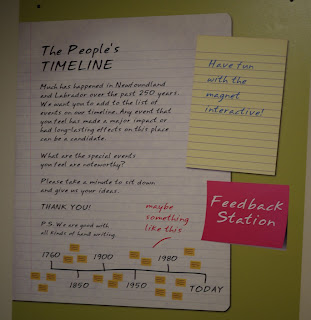 The People's
TIMELINE
Much has happened in Newfoundland
and Labrador over the past 250 years.
We want you to add to the list of
events on our timeline. Any event that
you feel has made a major impact or
had long-lasting effects on this place
can be a candidate.
What are the special events
you feel are noteworthy?
Please take a minute to sit down
and give us your ideas.
THANK YOU!
P.S. We are good with
all kinds of hand writing.
maybe
something
like this
1760
1900
1980
1850
1950
TODAY
Have fun
with the
magnet
interactive!
Feedback
Station